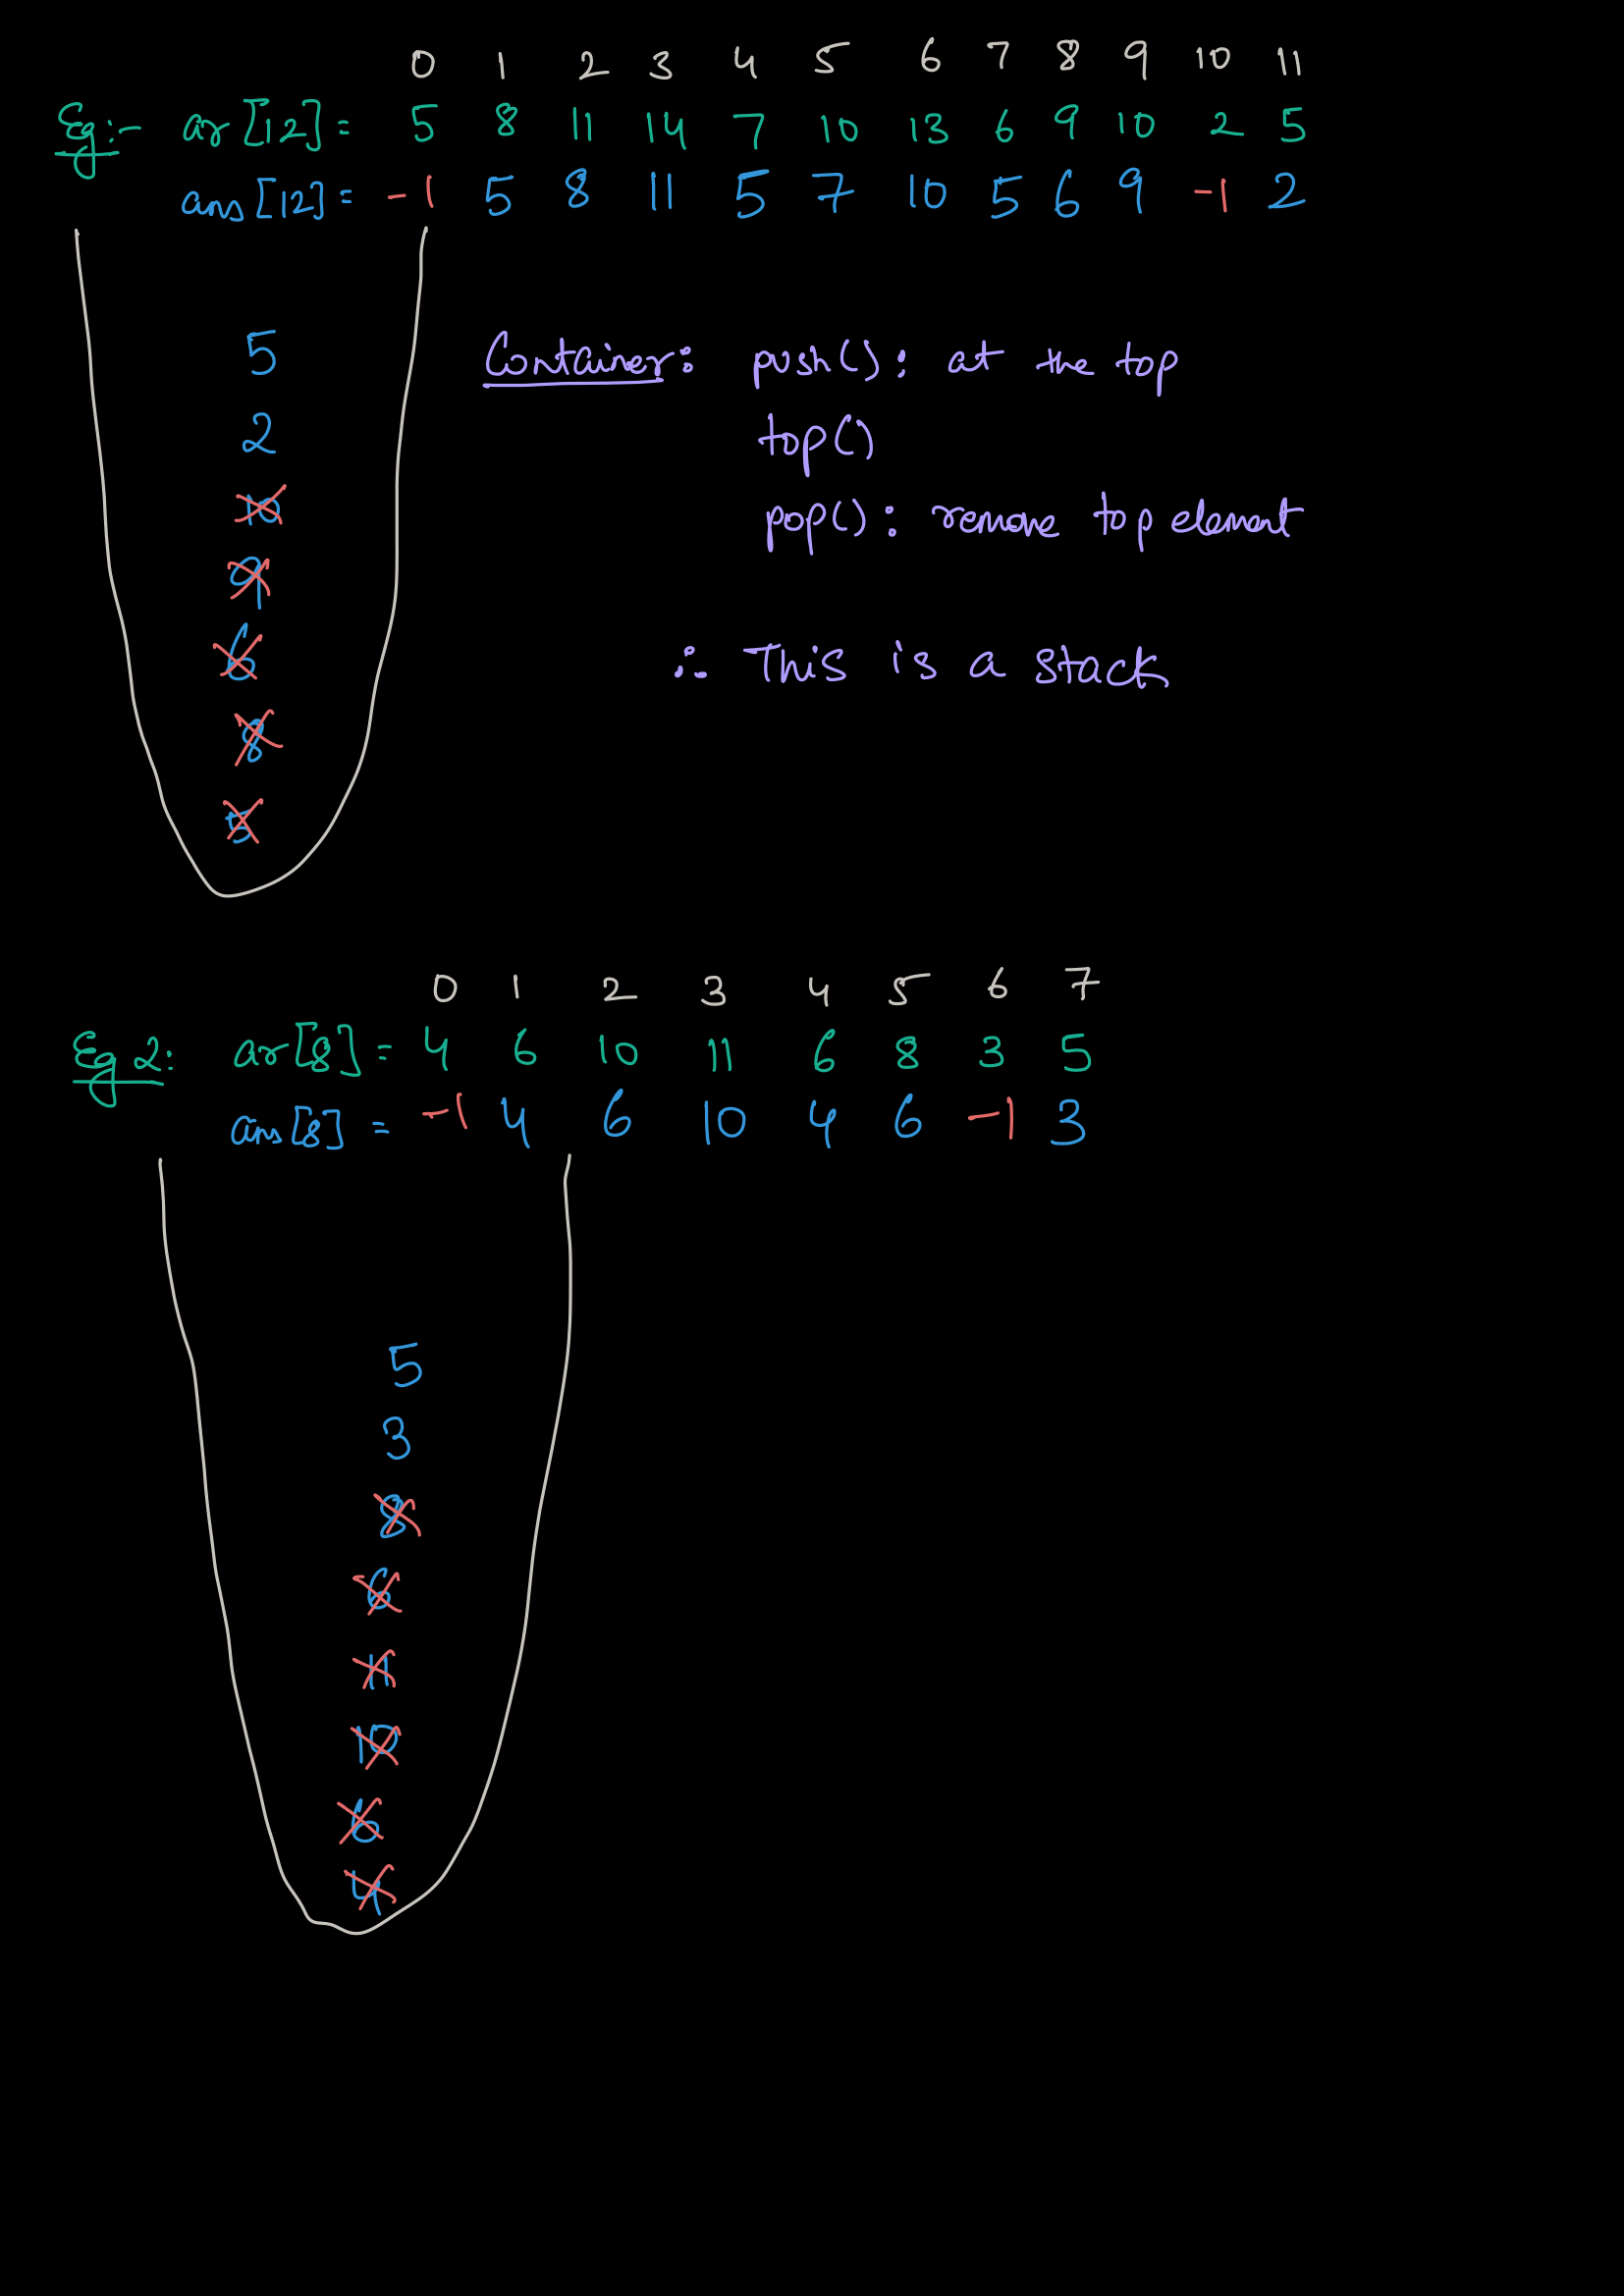 0 1 2 3 4 5 6 7 8 9 10 11
Eg:- ar[12] = 5 8 11 14 7 10 13 6 9 10 2 5
ans[12] = -1 5 8 11 5 7 10 5 6 9 -1 2
5
Container: push(): at the top
2
top()
10
pop(): remove top element
9
6
∴ This is a stack
8
5
0 1 2 3 4 5 6 7
Eg 2: ar[8] = 4 6 10 11 6 8 3 5
ans[8] = -1 4 6 10 4 6 -1 3
5
3
8
6
11
10
6
4